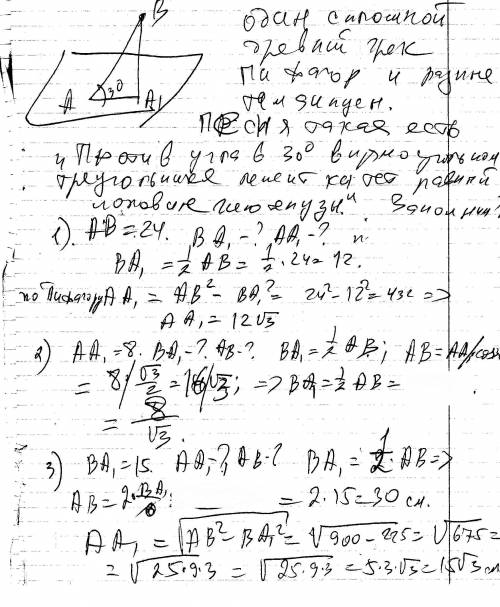 B
один сплошной
древний грек
Пифагор и разные
A 30 A₁
Песня такая есть
"Против угла в 30° в прямоугольном
треугольнике лежит катет равный
половине гипотенузы". Запомнил?
1). AB = 24. BA₁ - ? AA₁ - ?
BA₁ = 1/2 AB = 1/2 · 24 = 12.
по Пифагору AA₁ = AB² - BA₁² = 24² - 12² = 432 =>
AA₁ = 12√3
2) AA₁ = 8. BA₁ - ? AB - ? BA₁ = 1/2 AB; AB = AA₁/cos
= 8/ √3/2 = 16/√3; => BA₁ = 1/2 AB =
= 8/√3.
3) BA₁ = 15. AA₁ - ?, AB - ? BA₁ = 1/2 AB =>
AB = 2·BA₁ : = 2·15 = 30 см.
AA₁ = √AB² - BA₁² = √900 - 225 = √675 =
= √25·9·3 = √25·9·3 = 5·3·√3 = 15√3 см